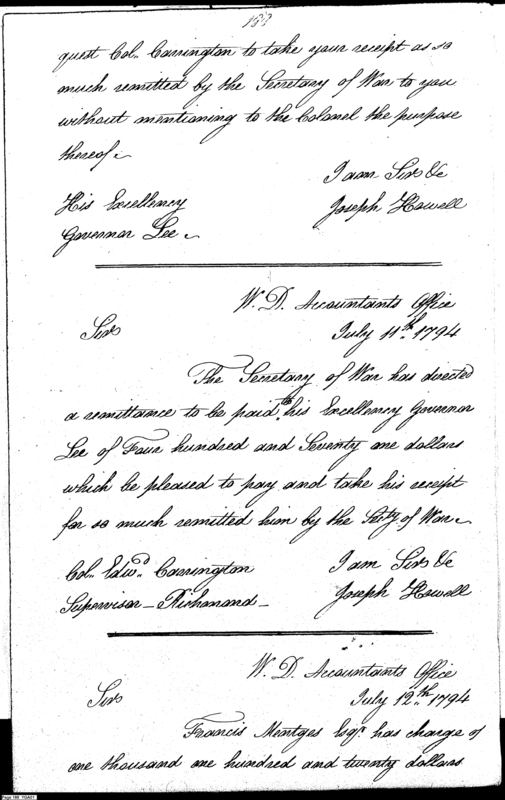 183
quest Col. Carrington to take your receipt as so
much remitted by the Secretary of War to you
without mentioning to the Colonel the purpose
thereof.
I am Sir &c
His Excellency
Joseph Howell
Governor Lee.
W. D. Accountants Office
Sir
July 11th. 1794
The Secretary of War has directed
a remittance to be paid to his Excellency Governor
Lee of Four hundred and Seventy one dollars
which be pleased to pay and take his receipt
for so much remitted him by the Secty of War.
Col. Edwd. Carrington
I am Sir &c
Supervisor - Richmond -
Joseph Howell
W. D. Accountants Office
Sir
July 12th. 1794
Francis Mentges Esqr has charge of
one thousand one hundred and twenty dollars